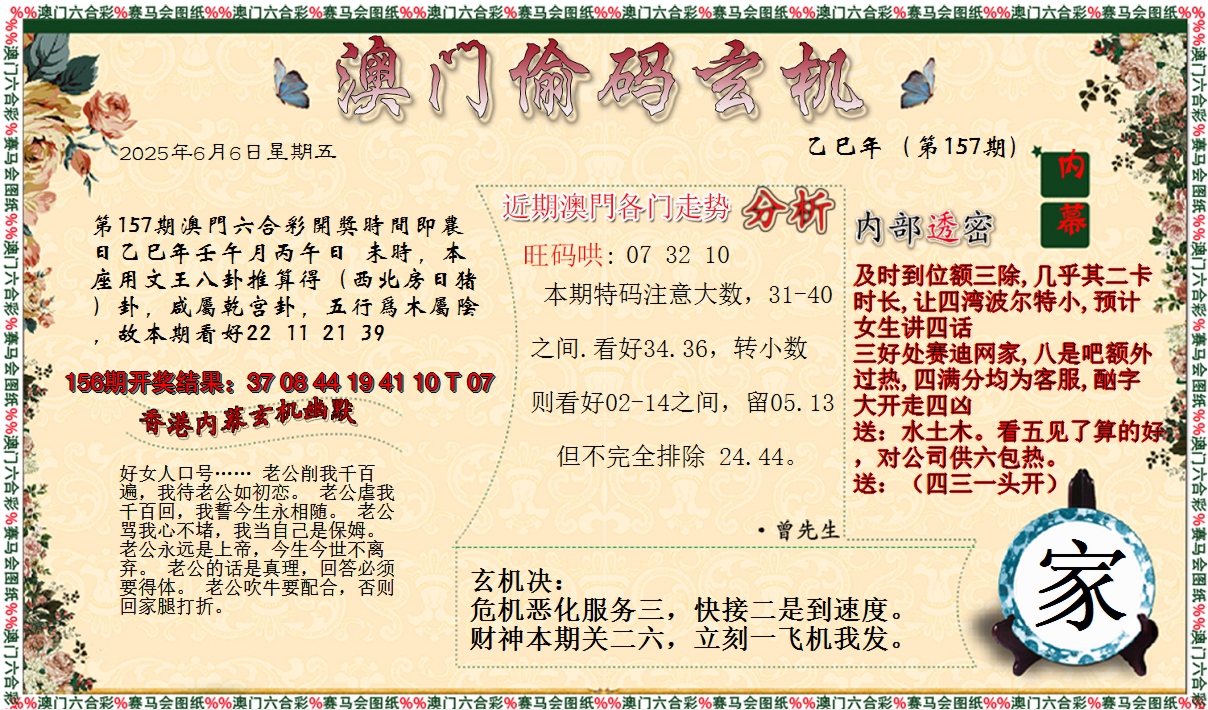 %%澳门六合彩%赛马会图纸%%澳门六合彩%赛马会图纸%%澳门六合彩%赛马会图纸%%澳门六合彩%赛马会图纸%%澳门六合彩%赛马会图纸%%澳门六合彩%赛马会图纸%%
澳门偷码玄机
2025年6月6日星期五
乙巳年（第157期）
内
幕
第157期澳門六合彩開獎時間即農
日乙巳年壬午月丙午日 未時，本
座用文王八卦推算得（西北房日猪
）卦，咸屬乾宫卦，五行爲木屬陰
，故本期看好22 11 21 39
156期开奖结果：37 08 44 19 41 10 T 07
香港内幕玄机幽默
好女人口号…… 老公削我千百
遍，我待老公如初恋。 老公虐我
千百回，我誓今生永相随。 老公
骂我心不堵，我当自己是保姆。
老公永远是上帝，今生今世不离
弃。 老公的话是真理，回答必须
要得体。 老公吹牛要配合，否则
回家腿打折。
近期澳門各门走势 分析
旺码哄: 07 32 10
本期特码注意大数，31-40
之间.看好34.36，转小数
则看好02-14之间，留05.13
但不完全排除 24.44。
·曾先生
玄机决：
危机恶化服务三，快接二是到速度。
财神本期关二六，立刻一飞机我发。
内部透密
及时到位额三除,几乎其二卡
时长,让四湾波尔特小,预计
女生讲四话
三好处赛迪网家,八是吧额外
过热,四满分均为客服,酗字
大开走四凶
送：水土木。看五见了算的好
，对公司供六包热。
送：（四三一头开）
家
%%澳门六合彩%赛马会图纸%%澳门六合彩%赛马会图纸%%澳门六合彩%赛马会图纸%%澳门六合彩%赛马会图纸%%澳门六合彩%赛马会图纸%%澳门六合彩%赛马会图纸%%